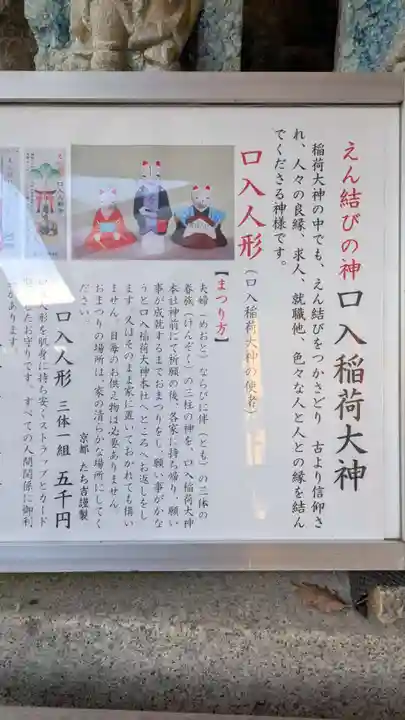 えん結びの神 口入稲荷大神
稲荷大神の中でも、えん結びをつかさどり 古より信仰さ
れ、人々の良縁、求人、就職他、色々な人と人との縁を結ん
でくださる神様です。
口入人形（口入稲荷大神の使者）
【まつり方】
夫婦（めおと）ならびに伴（とも）の三体の
眷族（けんぞく）の三柱の神を、口入稲荷大神
本社神前にて祈願の後、各家に持ち帰り、願い
事が成就するまでおまつりをし、願い事がかな
うと口入稲荷大神本社へところへお返しをし
ます 又はそのまま家に置いておかれても構い
ません 日毎のお供え物は必要ありません
おまつりの場所は、家の清らかな場所にしてく
ださい
京都 たち吉謹製
口入人形 三体一組 五千円
人形を肌身に持ち安くストラップとカード
お守りです。すべての人間関係に御利
あります